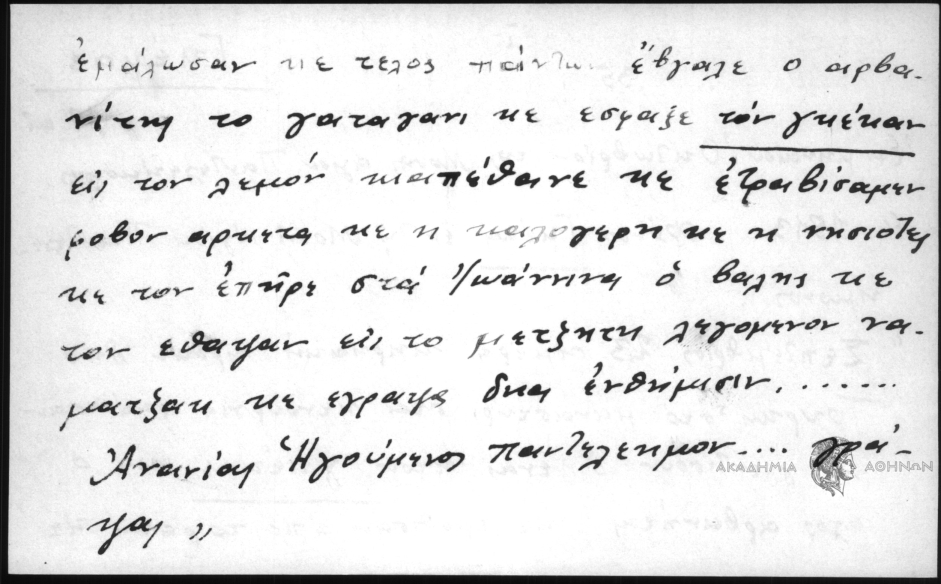 ἐμάλωσαν κε τελος πάντων ἔβγαλε ο αρβα-
νίτης το γαταγανι κε εσφαξε τόν γκέκαν
εις τον λεμόν κιαπέθαινε κε ἐτραβίσαμεν
φοβον αρκετα κε η καλογερη κε η νησιοτες
κε τον ἐπῆρε στά Ἰωάννινα ὁ βαλης κε
τον εθαψαν εις το μετζητη λεγομενον να-
ματζακι κε εγραψα δια ἐνθήμισιν.......
Ἀνανίας Ἡγούμενος παντελεημον.... γρά-
ψας „
ΑΚΑΔΗΜΙΑ ΑΘΗΝΩΝ